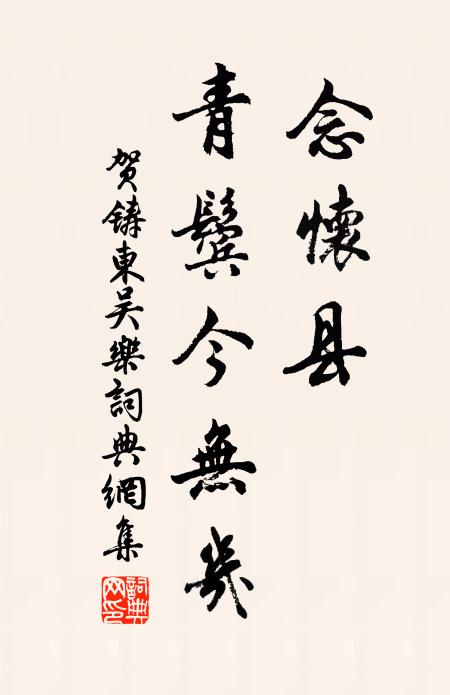 念懷县
青鬓今無幾
贺鑄東吴樂詞典網集
詞典网印